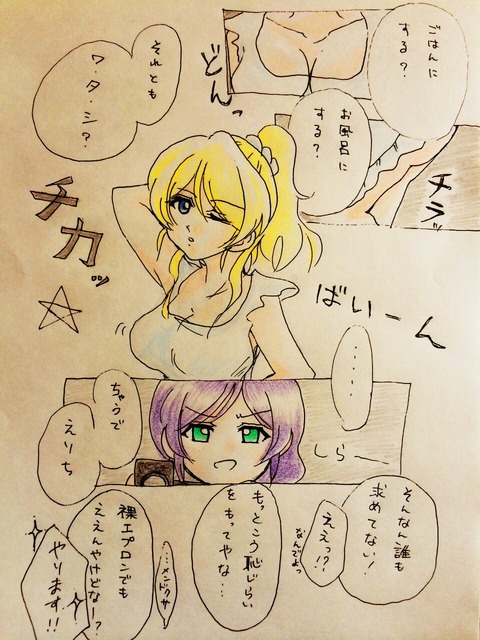 ごはんに
する？
どんっ
お風呂に
する？
チラッ
それとも
ワ・タ・シ？
チカッ
ばいーん
・・・・・
しらー
ちゃうで
えりち
そんなん誰も
求めてない！
ええっ!?
なんでよっ
もっとこう恥じらい
をもってやな…
…メンドクサ
裸エプロンでも
ええんやけどなー？
やります!!